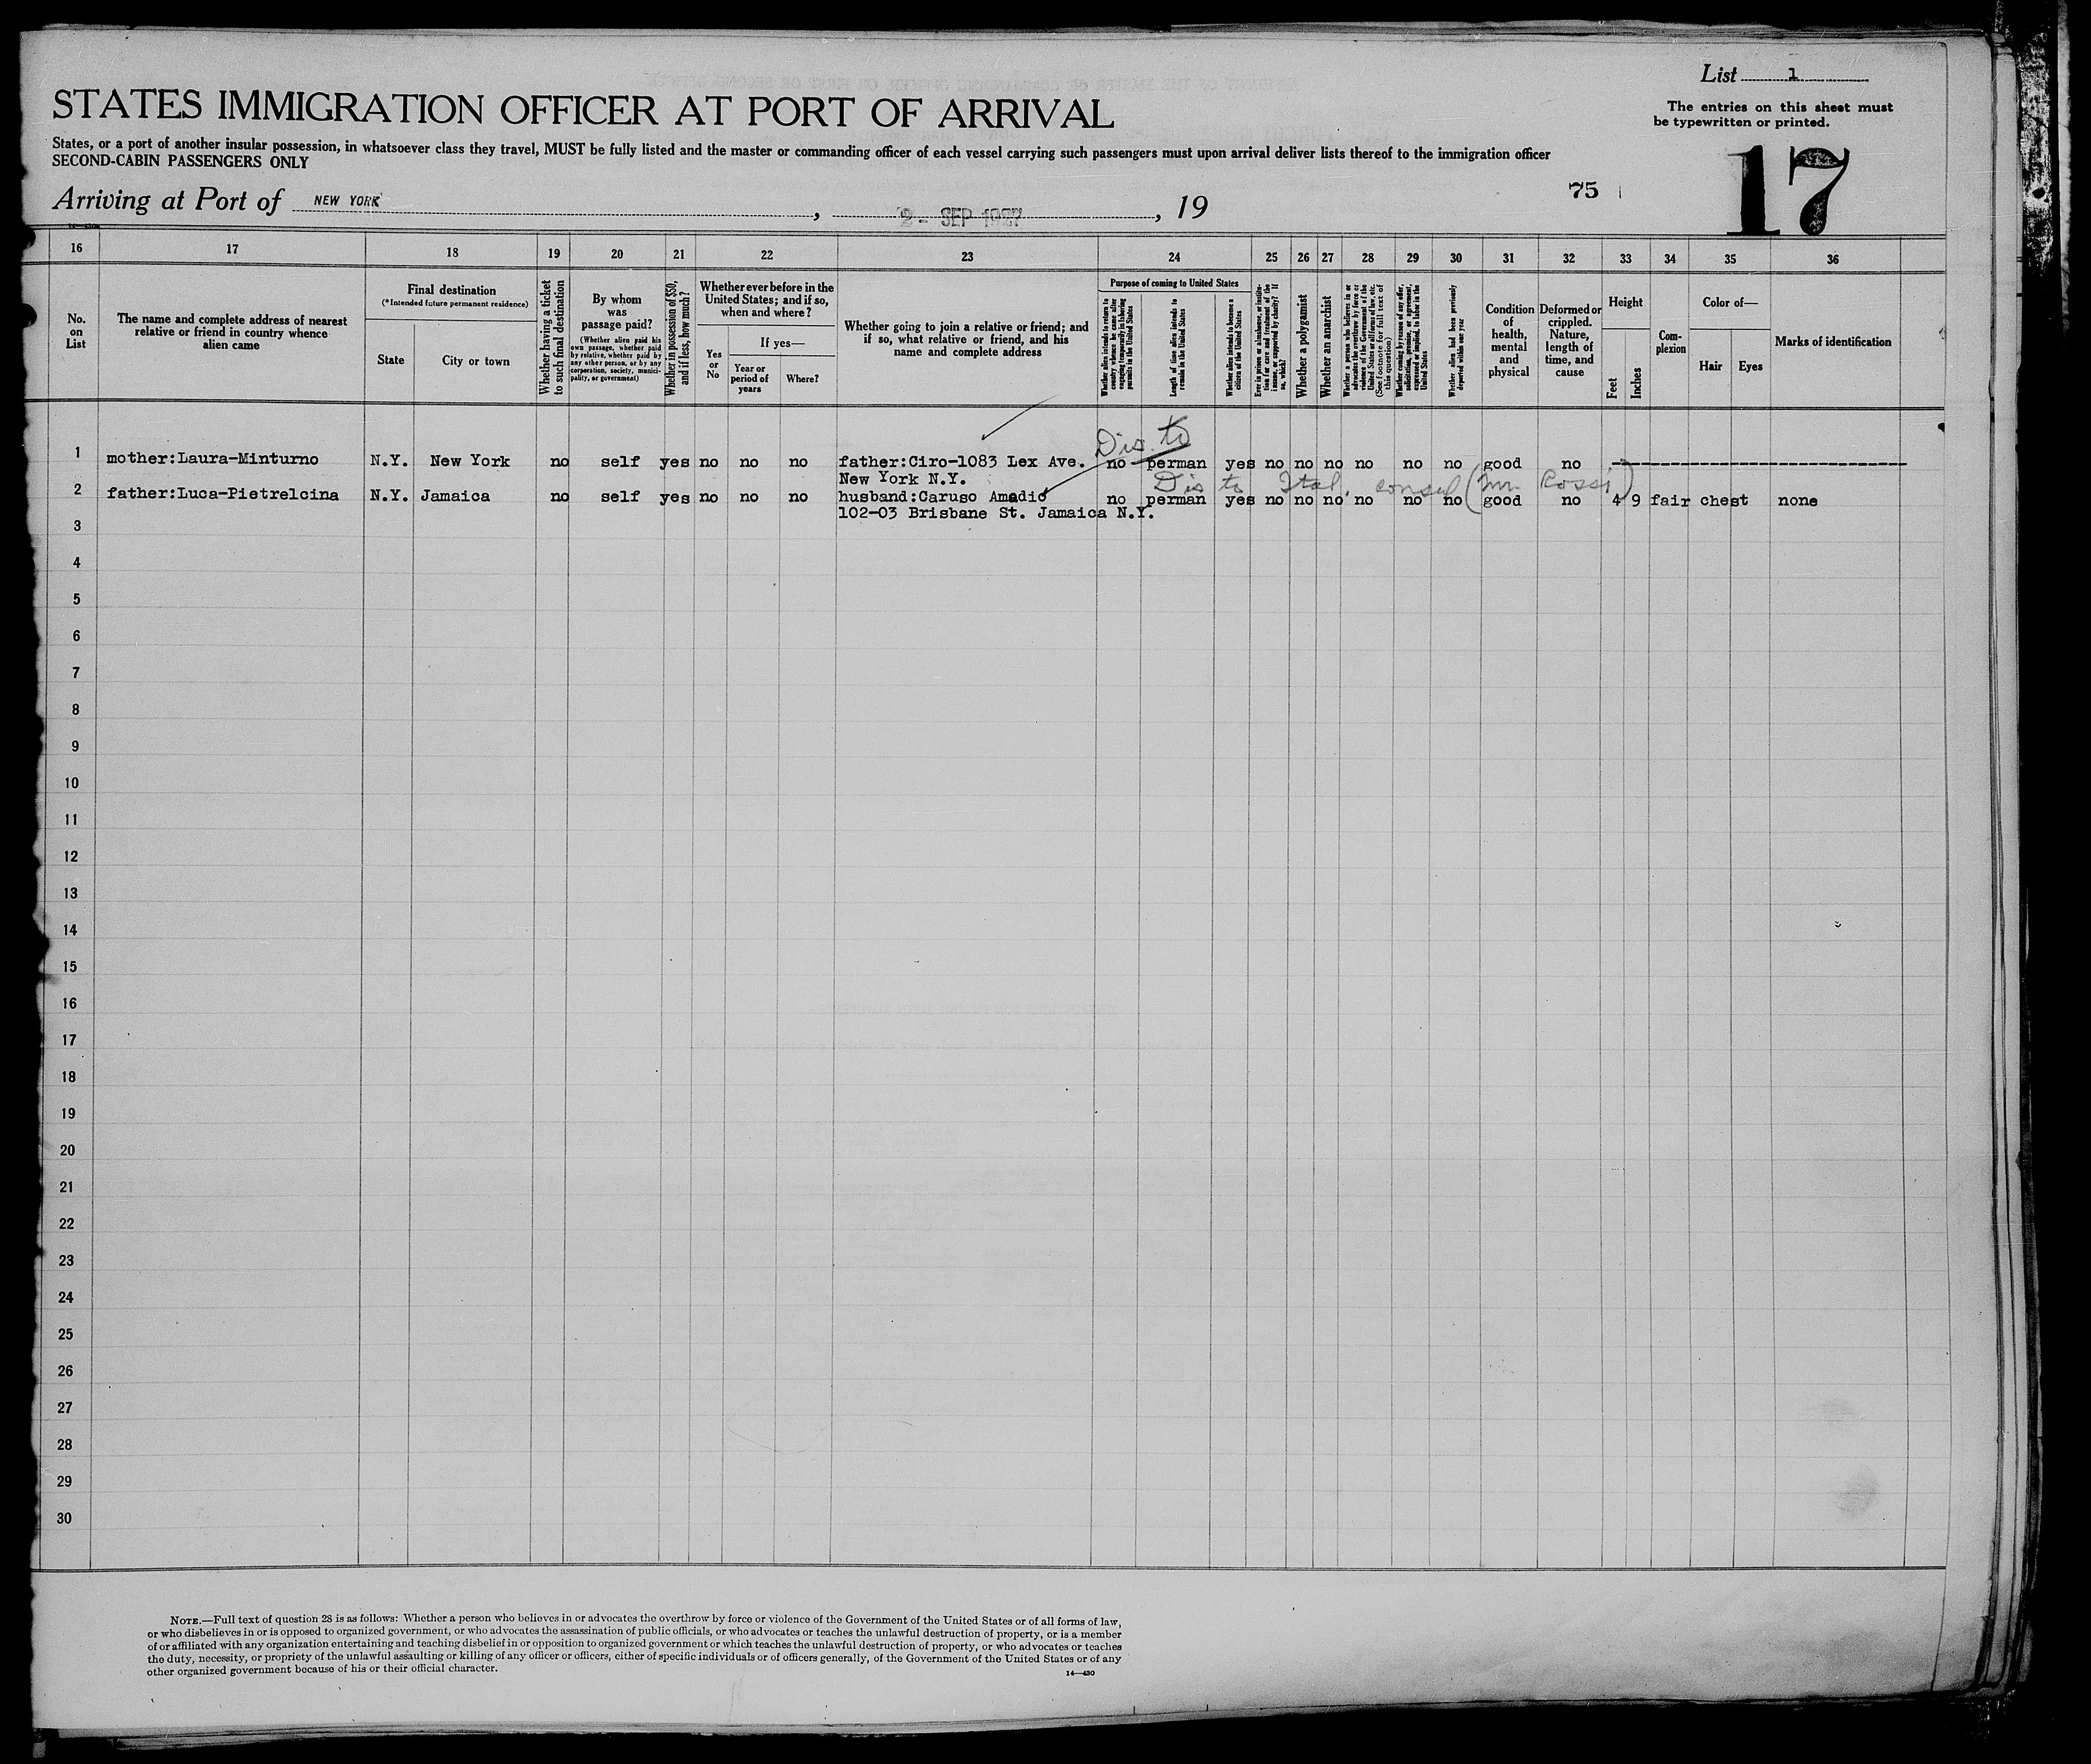 List 1
STATES IMMIGRATION OFFICER AT PORT OF ARRIVAL
The entries on this sheet must
be typewritten or printed.
States, or a port of another insular possession, in whatsoever class they travel, MUST be fully listed and the master or commanding officer of each vessel carrying such passengers must upon arrival deliver lists thereof to the immigration officer
SECOND-CABIN PASSENGERS ONLY
17
75
Arriving at Port of NEW YORK , 2 - SEP 1927 , 19
16 17 18 19 20 21 22 23 24 25 26 27 28 29 30 31 32 33 34 35 36
No.
on
List
The name and complete address of nearest
relative or friend in country whence
alien came
Final destination
(*Intended future permanent residence)
State
City or town
Whether having a ticket
to such final destination
By whom
was
passage paid?
(Whether alien paid his
own passage, whether paid
by relative, whether paid by
any other person, or by any
corporation, society, munici-
pality, or government)
Whether in possession of $50,
and if less, how much?
Whether ever before in the
United States; and if so,
when and where?
Yes
or
No
If yes—
Year or
period of
years
Where?
Whether going to join a relative or friend; and
if so, what relative or friend, and his
name and complete address
Purpose of coming to United States
Whether alien intends to return to
country whence he came after
engaging temporarily in laboring
pursuits in the United States
Length of time alien intends to
remain in the United States
Whether alien intends to become a
citizen of the United States
Ever in prison or almshouse, or institu-
tion for care and treatment of the
insane, or supported by charity? If
so, which?
Whether a polygamist
Whether an anarchist
Whether a person who believes in or
advocates the overthrow by force or
violence of the Government of the
United States or all forms of law, etc.
(See footnote for full text of
this question)
Whether coming by reason of any offer,
solicitation, promise, or agreement,
expressed or implied, to labor in the
United States
Whether alien had been previously
deported within one year
Condition
of
health,
mental
and
physical
Deformed or
crippled.
Nature,
length of
time, and
cause
Height
Feet
Inches
Com-
plexion
Color of—
Hair
Eyes
Marks of identification
Dis. to
1 mother:Laura-Minturno N.Y. New York no self yes no no no father:Ciro-1083 Lex Ave. no perman yes no no no no no no good no
New York N.Y.
Dis to Ital. consul (Mr Rossi)
2 father:Luca-Pietrelcina N.Y. Jamaica no self yes no no no husband:Caruso Amadio no perman yes no no no no no no good no 4 9 fair chest none
102-03 Brisbane St. Jamaica N.Y.
3
4
5
6
7
8
9
10
11
12
13
14
15
16
17
18
19
20
21
22
23
24
25
26
27
28
29
30
NOTE.—Full text of question 28 is as follows: Whether a person who believes in or advocates the overthrow by force or violence of the Government of the United States or of all forms of law,
or who disbelieves in or is opposed to organized government, or who advocates the assassination of public officials, or who advocates or teaches the unlawful destruction of property, or is a member
of or affiliated with any organization entertaining and teaching disbelief in or opposition to organized government or which teaches the unlawful destruction of property, or who advocates or teaches
the duty, necessity, or propriety of the unlawful assaulting or killing of any officer or officers, either of specific individuals or of officers generally, of the Government of the United States or of any
other organized government because of his or their official character.
14—430